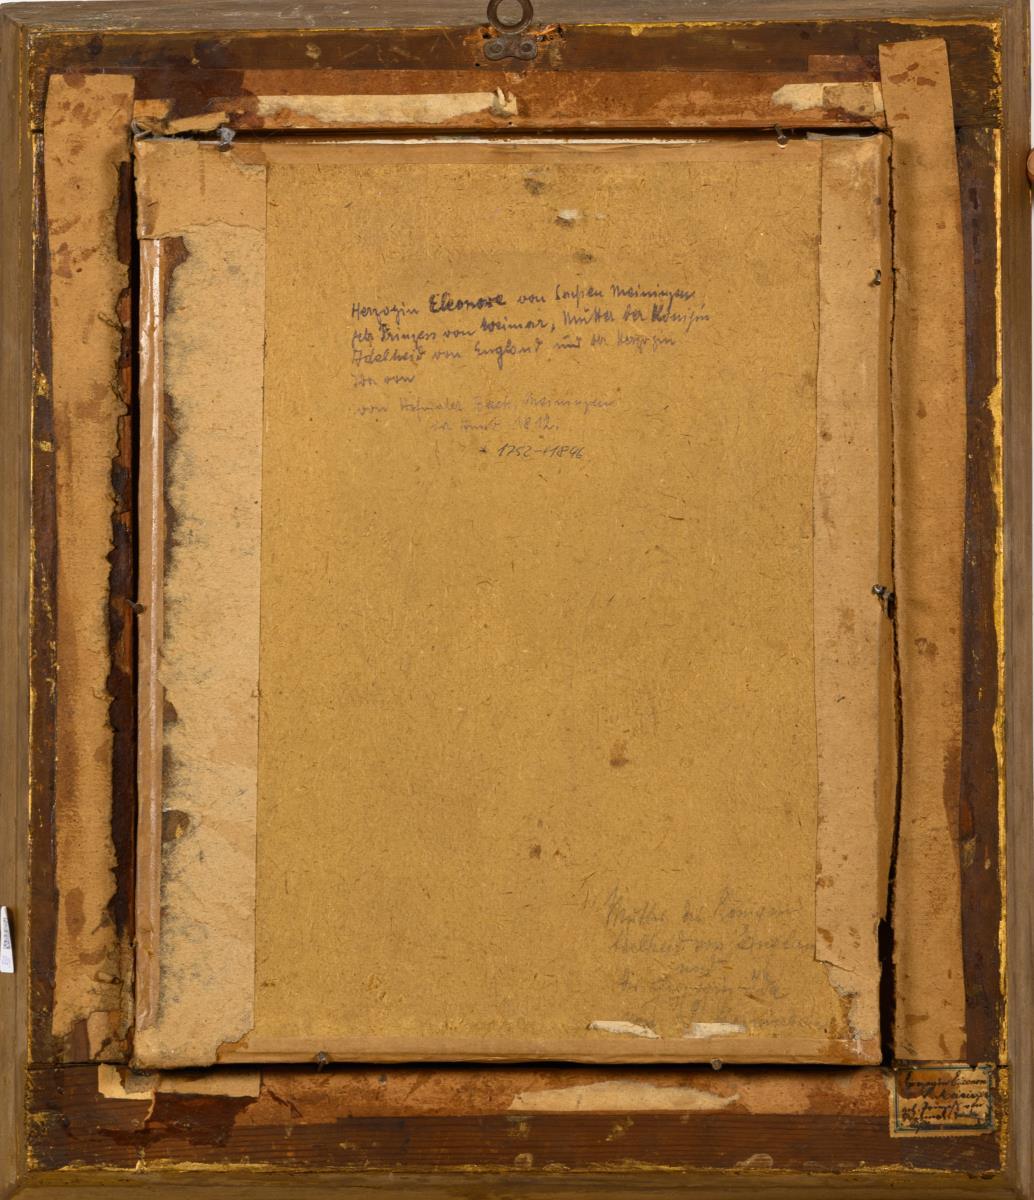 Herzogin Eleonore von Sachsen Meiningen,
geb. Prinzess von Weimar, Mutter der Königin
Adelheid von England und der Herzogin
Ida von
von Hofmaler Bach, Meiningen
1812.
* 1752-+1846
Mutter der Königin
Adelheid von England
und
der Herzogin Ida
Herzogin Eleonore
geb. Prinzess